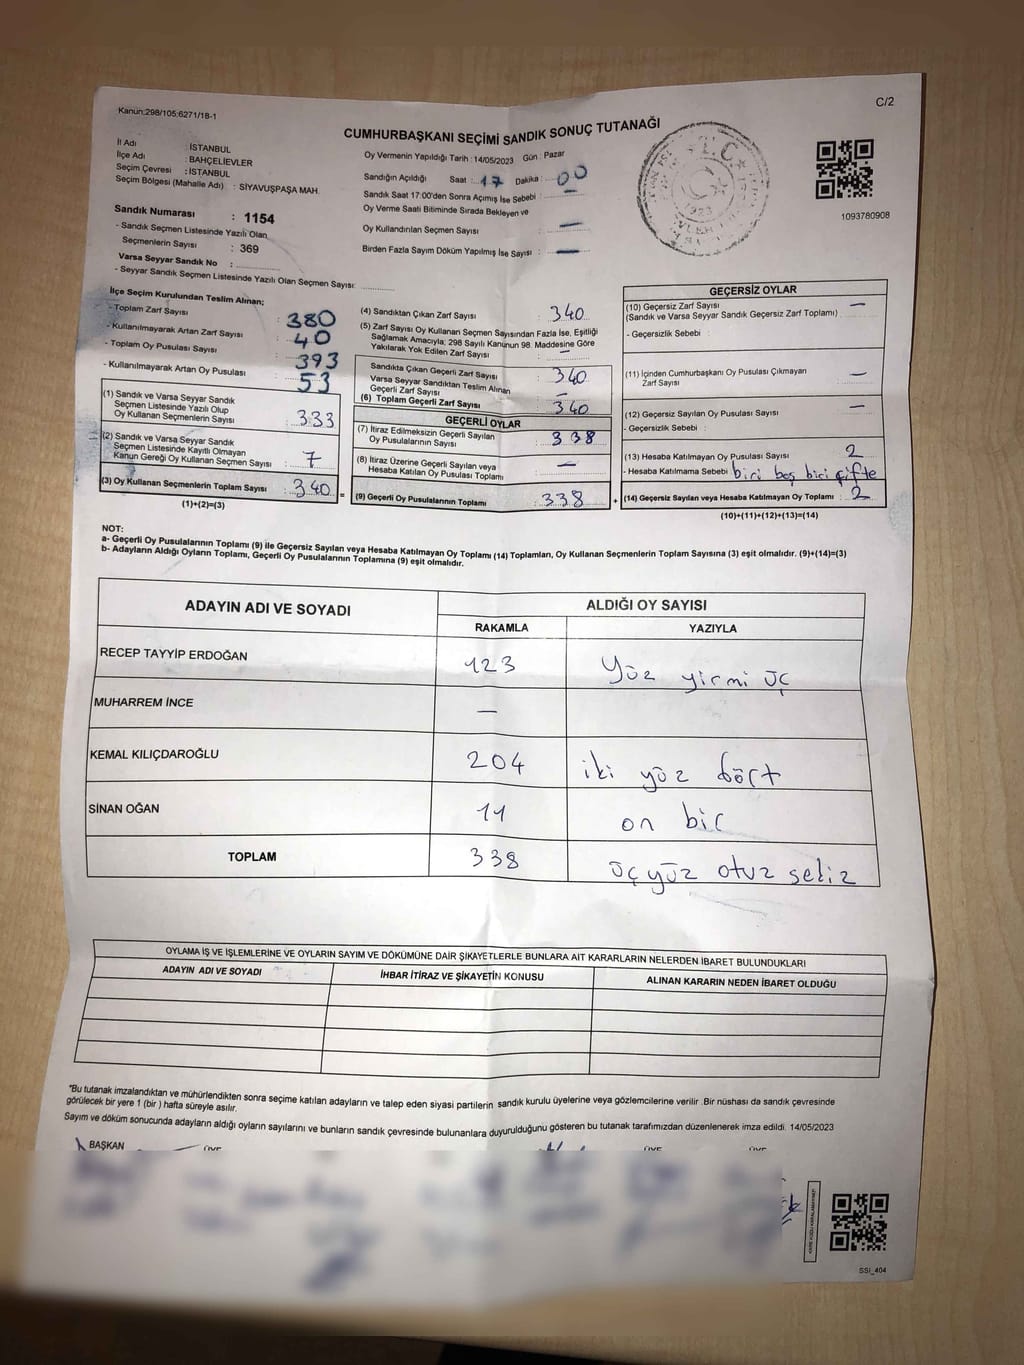 Kanun:298/105:6271/18-1
C/2
CUMHURBAŞKANI SEÇİMİ SANDIK SONUÇ TUTANAĞI
İl Adı : İSTANBUL
İlçe Adı : BAHÇELİEVLER
Seçim Çevresi : İSTANBUL
Seçim Bölgesi (Mahalle Adı) : SİYAVUŞPAŞA MAH.
Sandık Numarası : 1154
- Sandık Seçmen Listesinde Yazılı Olan
Seçmenlerin Sayısı : 369
Varsa Seyyar Sandık No :
- Seyyar Sandık Seçmen Listesinde Yazılı Olan Seçmen Sayısı:
Oy Vermenin Yapıldığı Tarih : 14/05/2023 Gün : Pazar
Sandığın Açıldığı Saat : 17 Dakika : 00
Sandık Saat 17:00'den Sonra Açımış İse Sebebi : —
Oy Verme Saati Bitiminde Sırada Bekleyen ve
Oy Kullandırılan Seçmen Sayısı —
Birden Fazla Sayım Döküm Yapılmış İse Sayısı : —
T.C.
1923
1093780908
İlçe Seçim Kurulundan Teslim Alınan;
- Toplam Zarf Sayısı : 380
- Kullanılmayarak Artan Zarf Sayısı : 40
- Toplam Oy Pusulası Sayısı : 393
- Kullanılmayarak Artan Oy Pusulası : 53
(1) Sandık ve Varsa Seyyar Sandık
Seçmen Listesinde Yazılı Olup
Oy Kullanan Seçmenlerin Sayısı : 333
(2) Sandık ve Varsa Seyyar Sandık
Seçmen Listesinde Kayıtlı Olmayan
Kanun Gereği Oy Kullanan Seçmen Sayısı : 7
(3) Oy Kullanan Seçmenlerin Toplam Sayısı : 340 =
(1)+(2)=(3)
(4) Sandıktan Çıkan Zarf Sayısı : 340
(5) Zarf Sayısı Oy Kullanan Seçmen Sayısından Fazla İse, Eşitliği
Sağlamak Amacıyla; 298 Sayılı Kanunun 98. Maddesine Göre
Yakılarak Yok Edilen Zarf Sayısı : —
Sandıkta Çıkan Geçerli Zarf Sayısı : 340
Varsa Seyyar Sandıktan Teslim Alınan
Geçerli Zarf Sayısı : —
(6) Toplam Geçerli Zarf Sayısı : 340
GEÇERLİ OYLAR
(7) İtiraz Edilmeksizin Geçerli Sayılan
Oy Pusulalarının Sayısı : 338
(8) İtiraz Üzerine Geçerli Sayılan veya
Hesaba Katılan Oy Pusulası Toplamı : —
(9) Geçerli Oy Pusulalarının Toplamı : 338 +
GEÇERSİZ OYLAR
(10) Geçersiz Zarf Sayısı —
(Sandık ve Varsa Seyyar Sandık Geçersiz Zarf Toplamı)
- Geçersizlik Sebebi :
(11) İçinden Cumhurbaşkanı Oy Pusulası Çıkmayan —
Zarf Sayısı
(12) Geçersiz Sayılan Oy Pusulası Sayısı : —
- Geçersizlik Sebebi :
(13) Hesaba Katılmayan Oy Pusulası Sayısı : 2
- Hesaba Katılmama Sebebi biri boş biri çifte
(14) Geçersiz Sayılan veya Hesaba Katılmayan Oy Toplamı : 2
(10)+(11)+(12)+(13)=(14)
NOT:
a- Geçerli Oy Pusulalarının Toplamı (9) ile Geçersiz Sayılan veya Hesaba Katılmayan Oy Toplamı (14) Toplamları, Oy Kullanan Seçmenlerin Toplam Sayısına (3) eşit olmalıdır. (9)+(14)=(3)
b- Adayların Aldığı Oyların Toplamı, Geçerli Oy Pusulalarının Toplamına (9) eşit olmalıdır.
ADAYIN ADI VE SOYADI ALDIĞI OY SAYISI
RAKAMLA YAZIYLA
RECEP TAYYİP ERDOĞAN 123 Yüz yirmi üç
MUHARREM İNCE —
KEMAL KILIÇDAROĞLU 204 iki yüz dört
SİNAN OĞAN 11 on bir
TOPLAM 338 üç yüz otuz sekiz
OYLAMA İŞ VE İŞLEMLERİNE VE OYLARIN SAYIM VE DÖKÜMÜNE DAİR ŞİKAYETLERLE BUNLARA AİT KARARLARIN NELERDEN İBARET BULUNDUKLARI
ADAYIN ADI VE SOYADI İHBAR İTİRAZ VE ŞİKAYETİN KONUSU ALINAN KARARIN NEDEN İBARET OLDUĞU
*Bu tutanak imzalandıktan ve mühürlendikten sonra seçime katılan adayların ve talep eden siyasi partilerin sandık kurulu üyelerine veya gözlemcilerine verilir .Bir nüshası da sandık çevresinde
görülecek bir yere 1 (bir ) hafta süreyle asılır.
Sayım ve döküm sonucunda adayların aldığı oyların sayılarını ve bunların sandık çevresinde bulunanlara duyurulduğunu gösteren bu tutanak tarafımızdan düzenlenerek imza edildi. 14/05/2023
BAŞKAN ÜYE ÜYE ÜYE
SSI_404